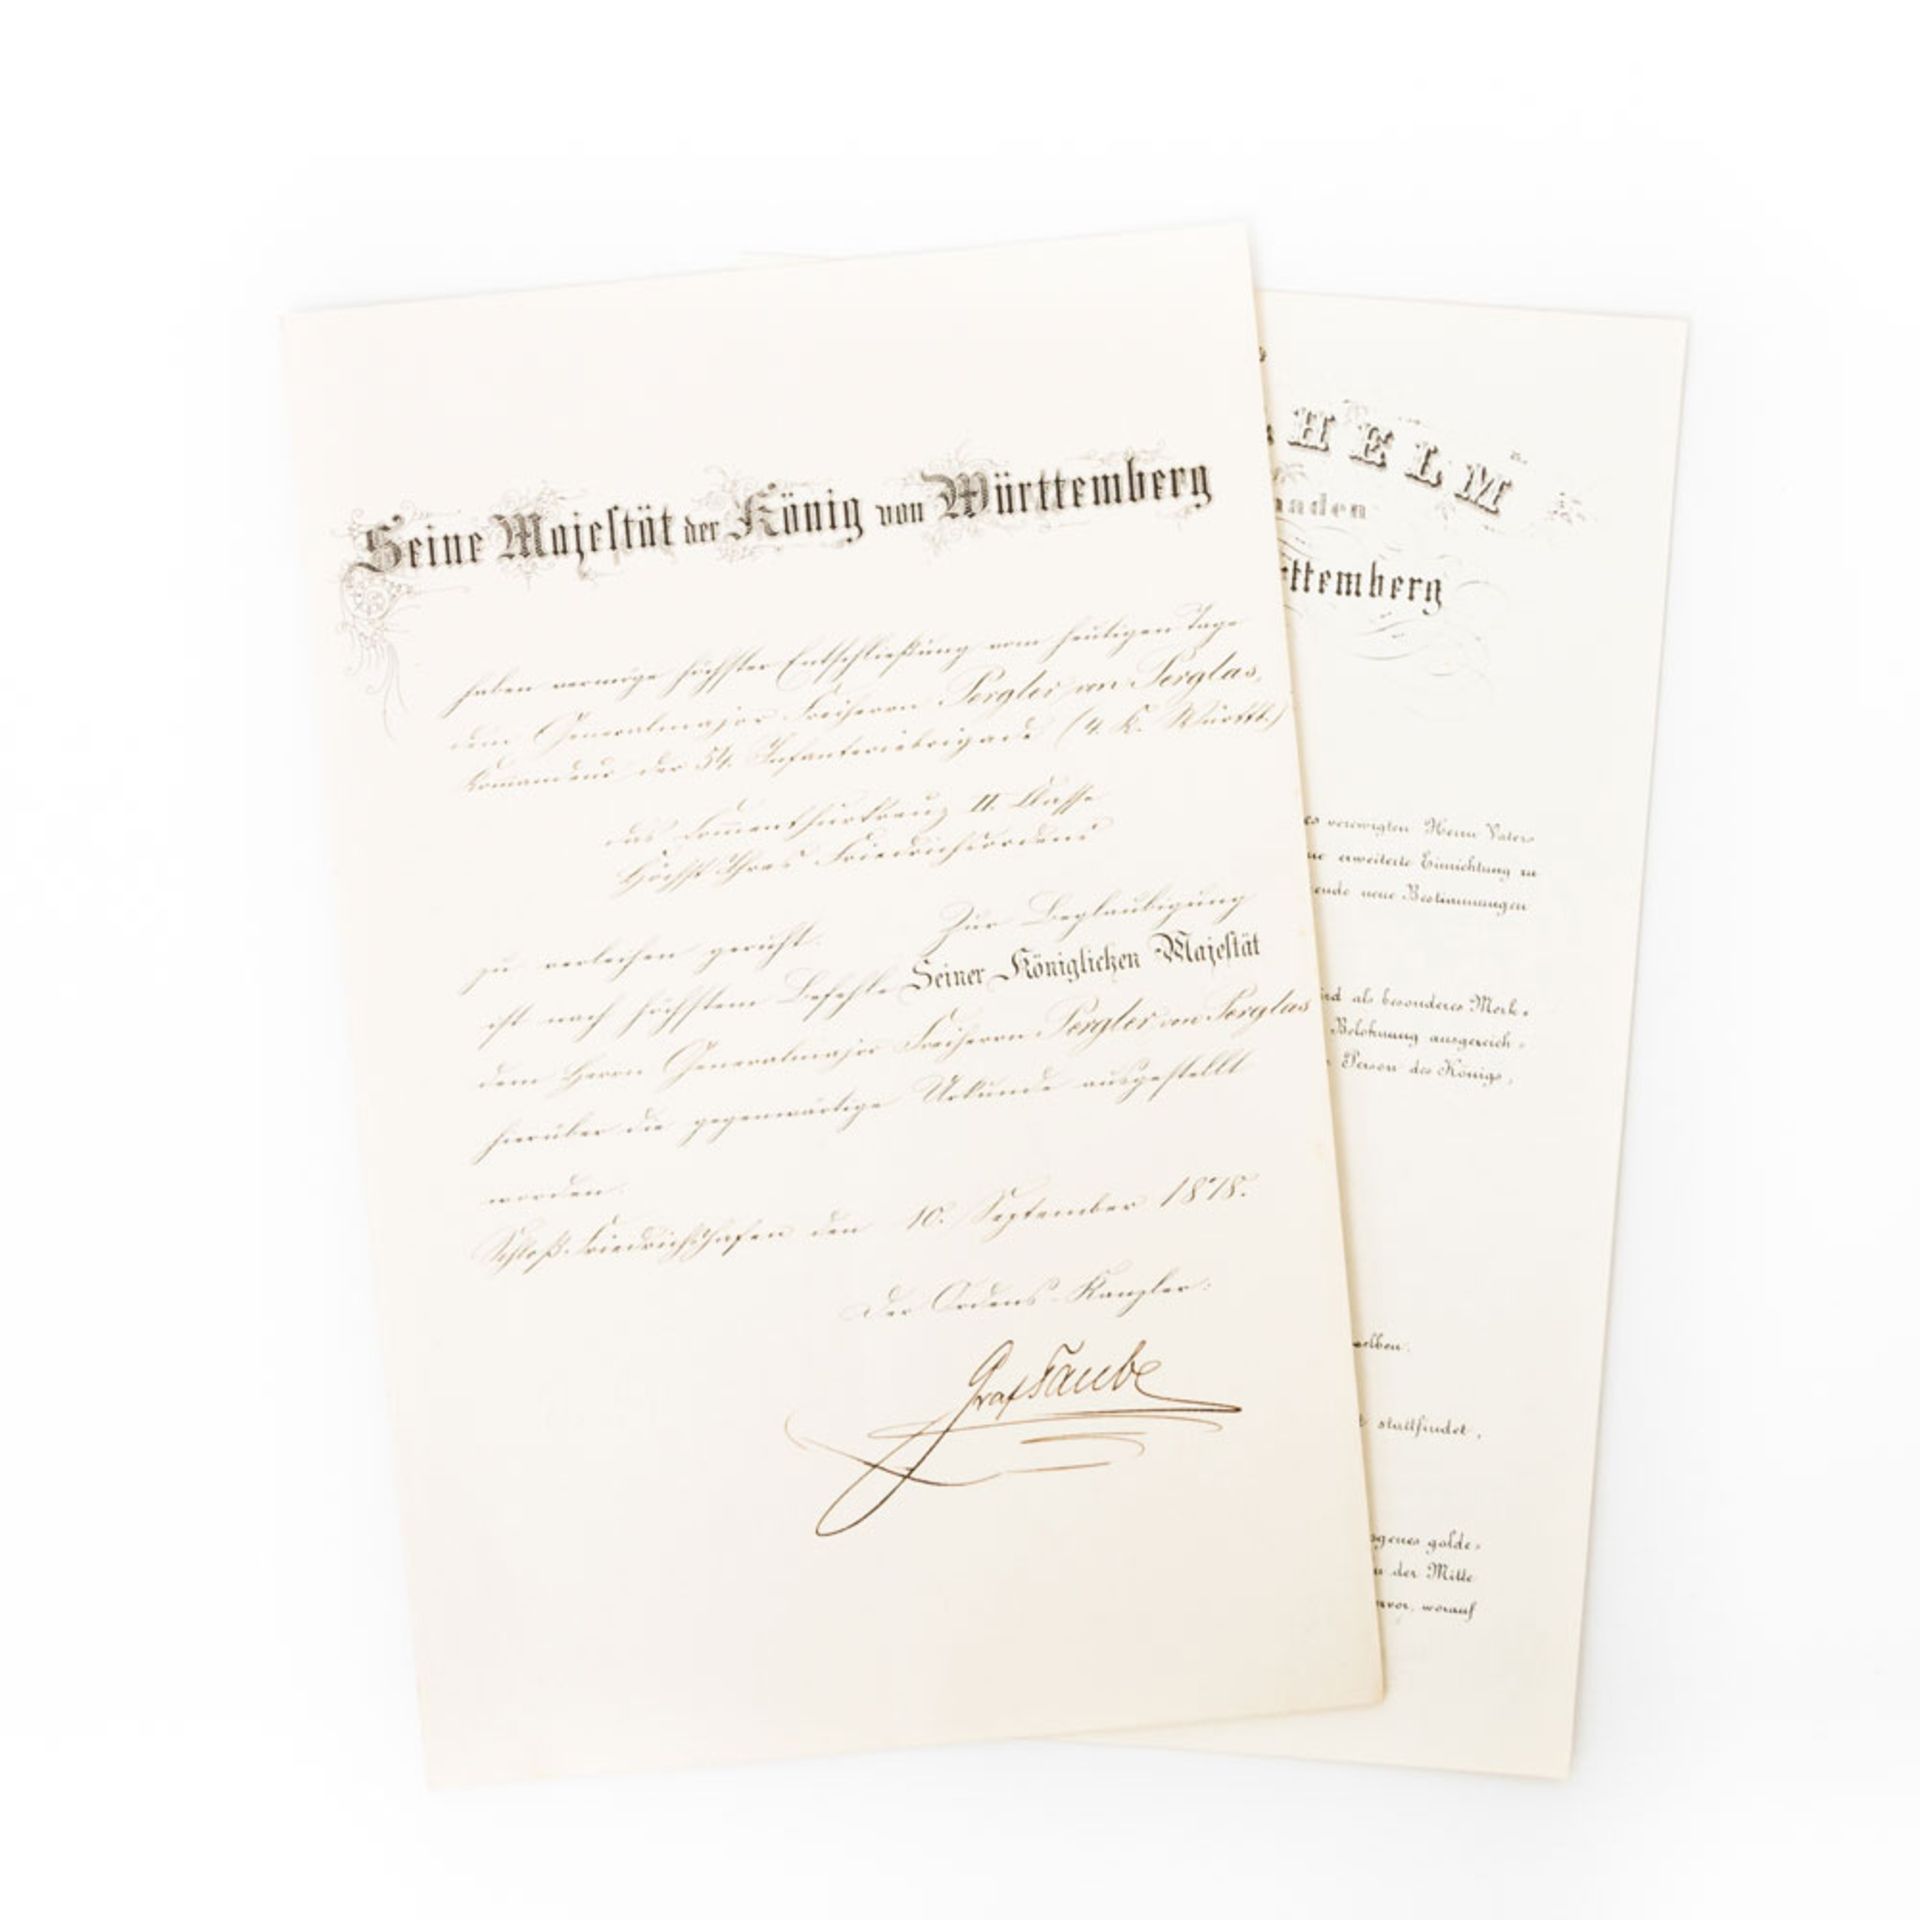 Seine Majestät der König von Württemberg
haben vermöge höchster Entschließung vom heutigen Tage
dem Generalmajor Freiherrn Pergler von Perglas,
Commandeur der 54. Infanteriebrigade (4. K. Württ.)
das Commenthurkreuz II. Classe
Höchst Ihres Friedrichsordens
zu verleihen geruht. Zur Beglaubigung
ist nach höchstem Befehle Seiner Königlichen Majestät
dem Herrn Generalmajor Freiherrn Pergler von Perglas
hierüber die gegenwärtige Urkunde ausgestellt
worden.
Schloß Friedrichshafen den 10. September 1878.
Der Ordens-Kanzler:
Graf Taube
HELM
naden
ttemberg
es verewigten Herrn Vaters
ne erweiterte Einrichtung zu
ende neue Bestimmungen
rd als besonderes Merk-
Belohnung ausgezeich-
Person des Königs,
selben.
t stattfindet,
ogenes golde-
der Mitte
rvor, worauf